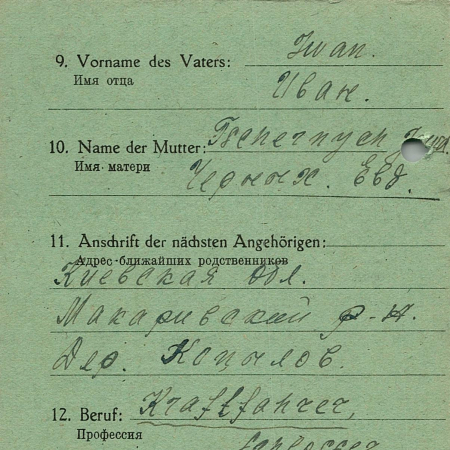 9. Vorname des Vaters: Iwan.
Имя отца Иван.
10. Name der Mutter: Tschernych
Имя матери Черных. Евд.
11. Anschrift der nächsten Angehörigen:
Адрес ближайших родственников
Киевская обл.
Макаривский р-н.
Дер. Копылов.
12. Beruf: Kraftfahrer,
Профессия Schlosser